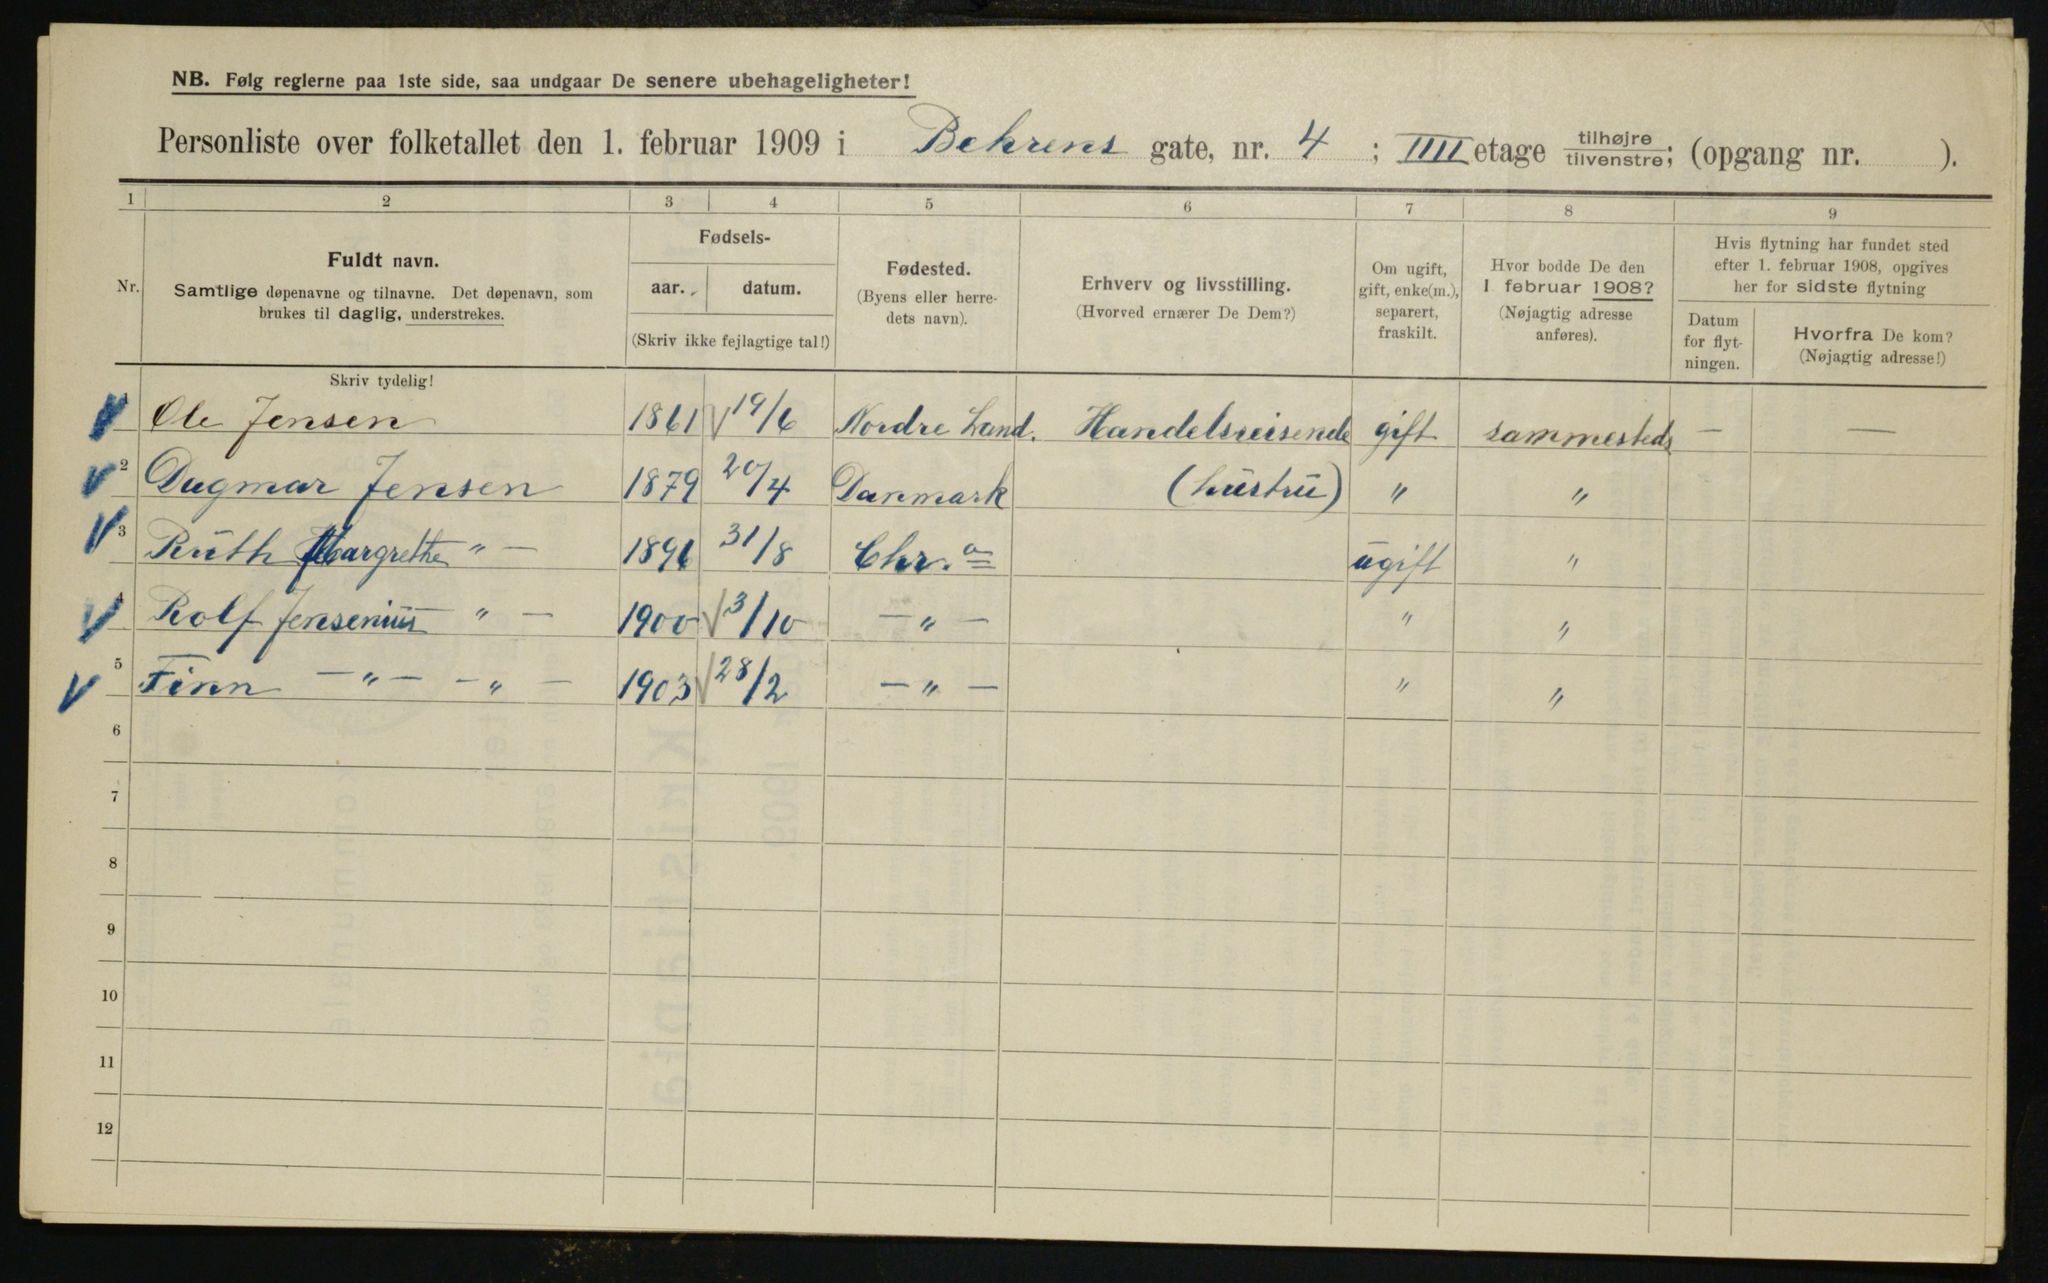 NB. Følg reglerne paa 1ste side, saa undgaar De senere ubehageligheter!
Personliste over folketallet den 1. februar 1909 i Behrens gate, nr. 4 ; IIII etage tilhøjre/tilvenstre; (opgang nr. ).
1 2 3 4 5 6 7 8 9
Nr.
Fuldt navn.
Samtlige døpenavne og tilnavne. Det døpenavn, som
brukes til daglig, understrekes.
Skriv tydelig!
Fødsels-
aar. datum.
(Skriv ikke fejlagtige tal!)
Fødested.
(Byens eller herre-
dets navn).
Erhverv og livsstilling.
(Hvorved ernærer De Dem?)
Om ugift,
gift, enke(m.),
separert,
fraskilt.
Hvor bodde De den
1. februar 1908?
(Nøjagtig adresse
anføres).
Hvis flytning har fundet sted
efter 1. februar 1908, opgives
her for sidste flytning
Datum
for flyt-
ningen.
Hvorfra De kom?
(Nøjagtig adresse!)
1 Ole Jensen 1861 19/6 Nordre Land. Handelsreisende gift sammesteds — —
2 Dagmar Jensen 1879 20/4 Danmark (hustru) " "
3 Ruth Margrethe " — 1896 31/8 Chr.a ugift "
4 Rolf Jensenius " — 1900 3/10 — " — " "
5 Finn — " — — " — 1903 28/2 — " — " "
6
7
8
9
10
11
12